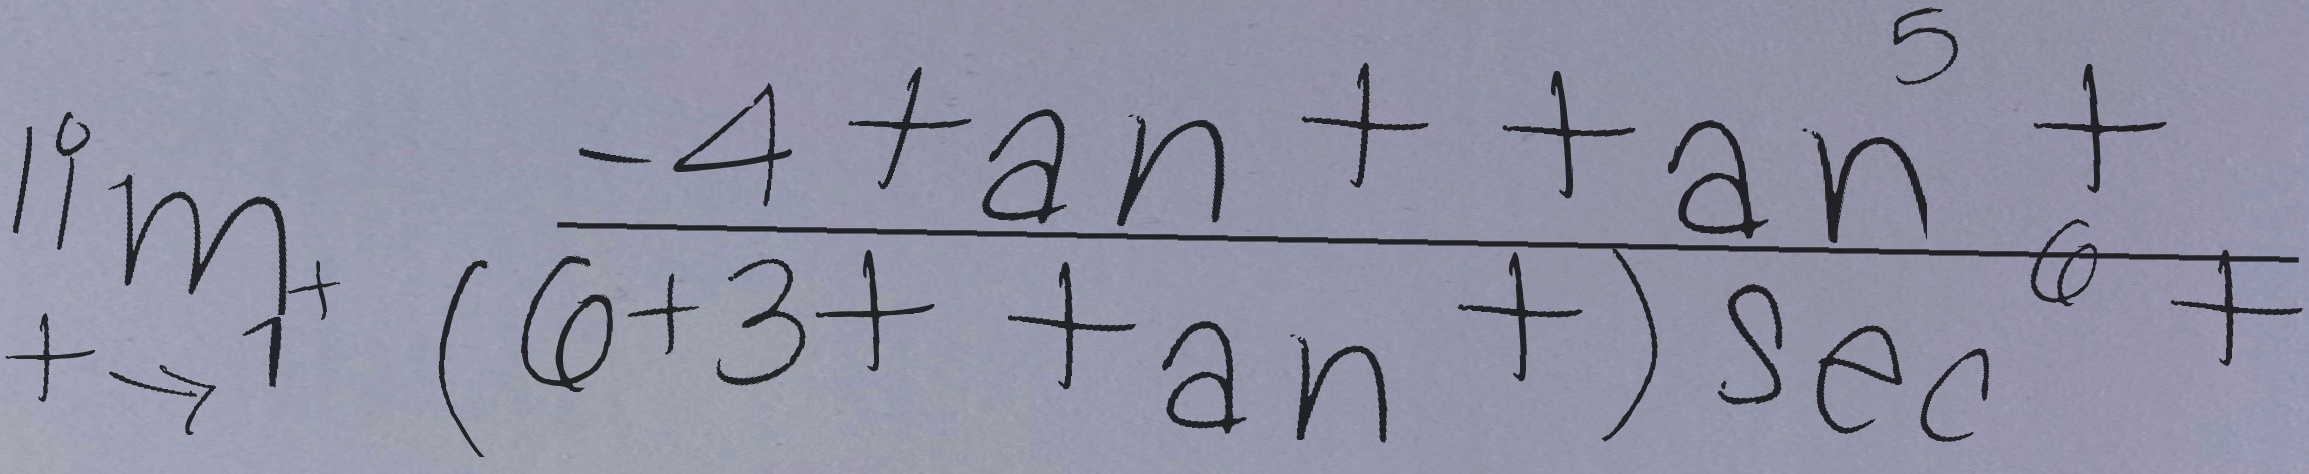 \lim_{t \to 1^+} \frac{-4 \tan t \tan^5 t}{(6+3t \tan t) \sec^6 t}